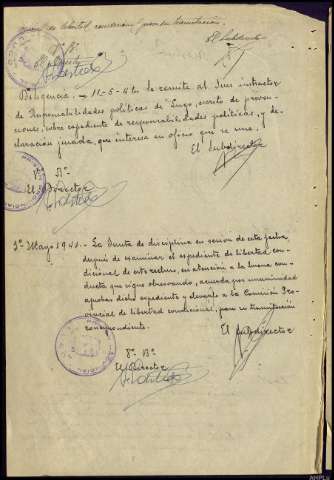 de libertad condicional para su tramitación.
El Subdirector
Vº Bº
El Director
Diligencia.- 11-5-41. Se remite al Juez instructor
de Responsabilidades políticas de Lugo, escrito de
sobre expediente de responsabilidades políticas, y de-
claración jurada, que interesa en oficio que se une.
El Subdirector
Vº Bº
El Director
1º Mayo 1941.- La Junta de disciplina en sesión de esta fecha,
después de examinar el expediente de libertad con-
dicional de este recluso, en atención a la buena con-
ducta que sigue observando, acuerda por unanimidad
aprobar dicho expediente y elevarlo a la Comisión Pro-
vincial de libertad condicional, para su tramitación
correspondiente.
El Subdirector
Vº Bº
El Director
AHPLu